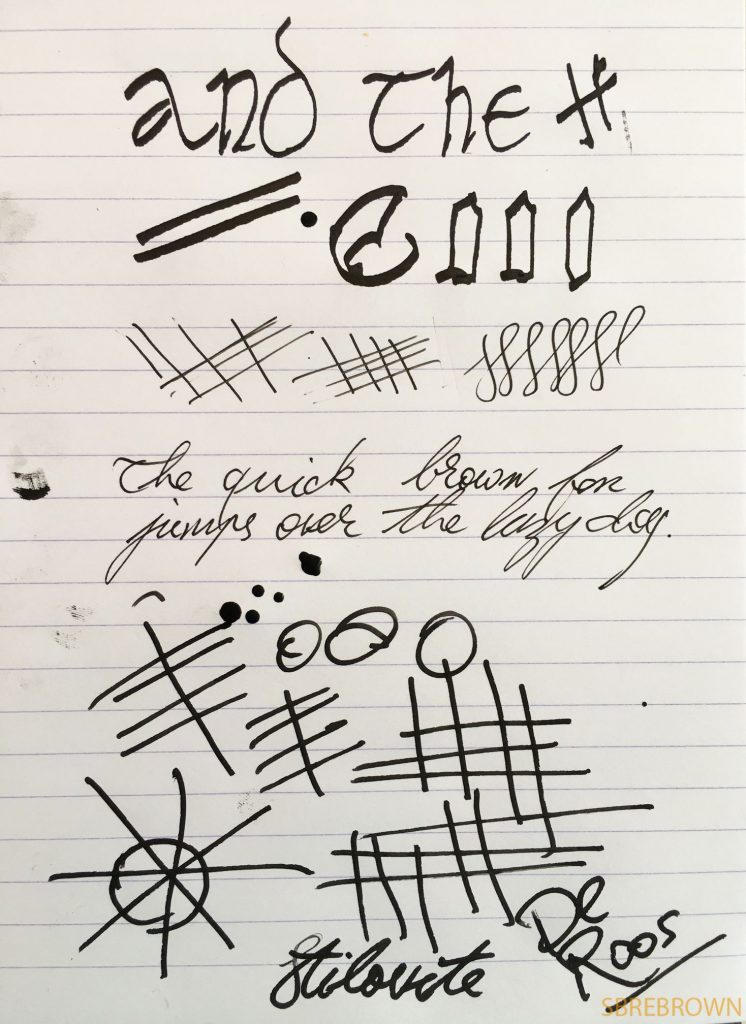 and The
The quick brown fox
jumps over the lazy dog.
De
Roos
Stilovite
SBREBROWN